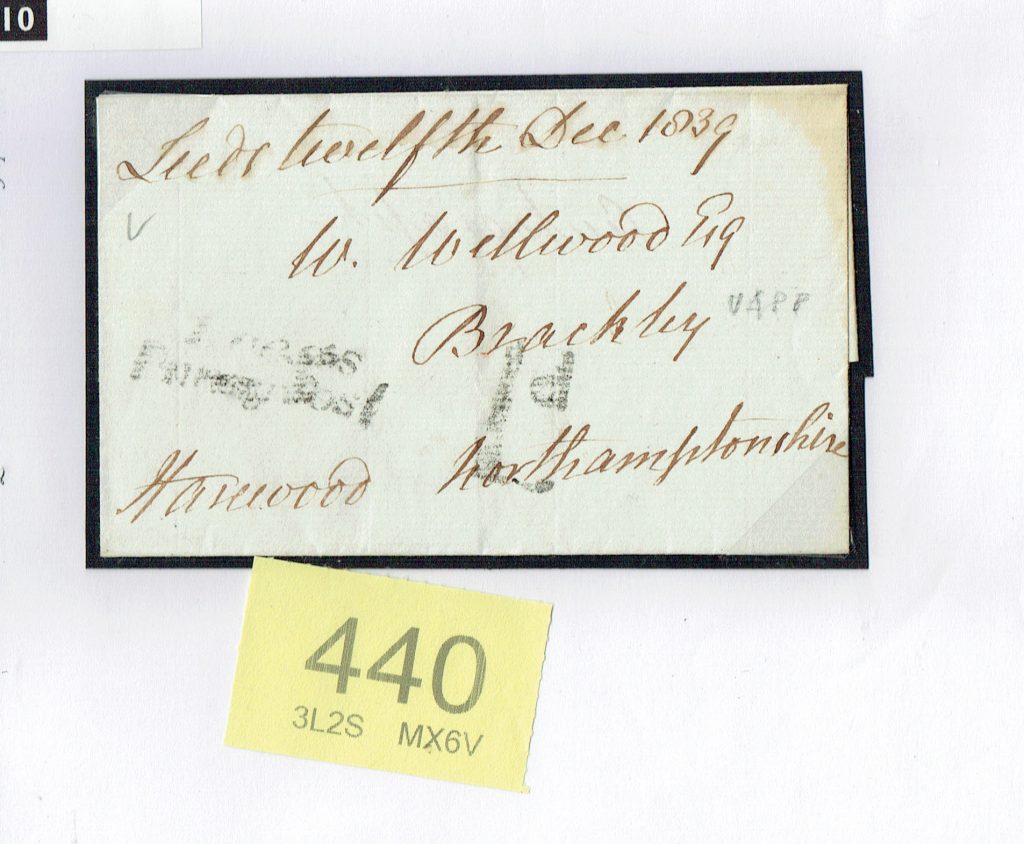 10
Leeds twelfth Dec 1839
W. Wellwood Esq
Brackley
V4PP
Penny Post
1d
Harewood Northamptonshire
440
3L2S MX6V